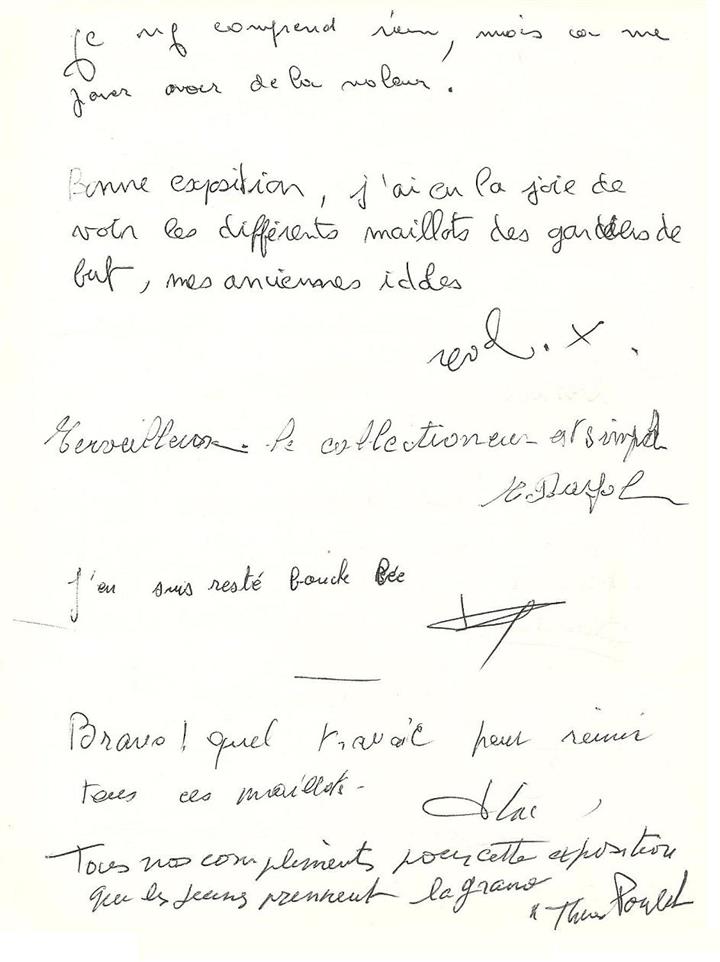 je ny comprend rien, mais ca me
avoir de la valeur.
Bonne expsition, j'ai eu la joie de
voir les différents maillots des gardiens de
but, mes anciennes iddes
Merveilleux. le collectioneur est simpl
J'en suis resté bouck Bée
Bravo ! quel travail pour réunir
tous ces maillots-
Tous nos compliments pour cette exposition
que les jeuns prennent la grano
Poulet